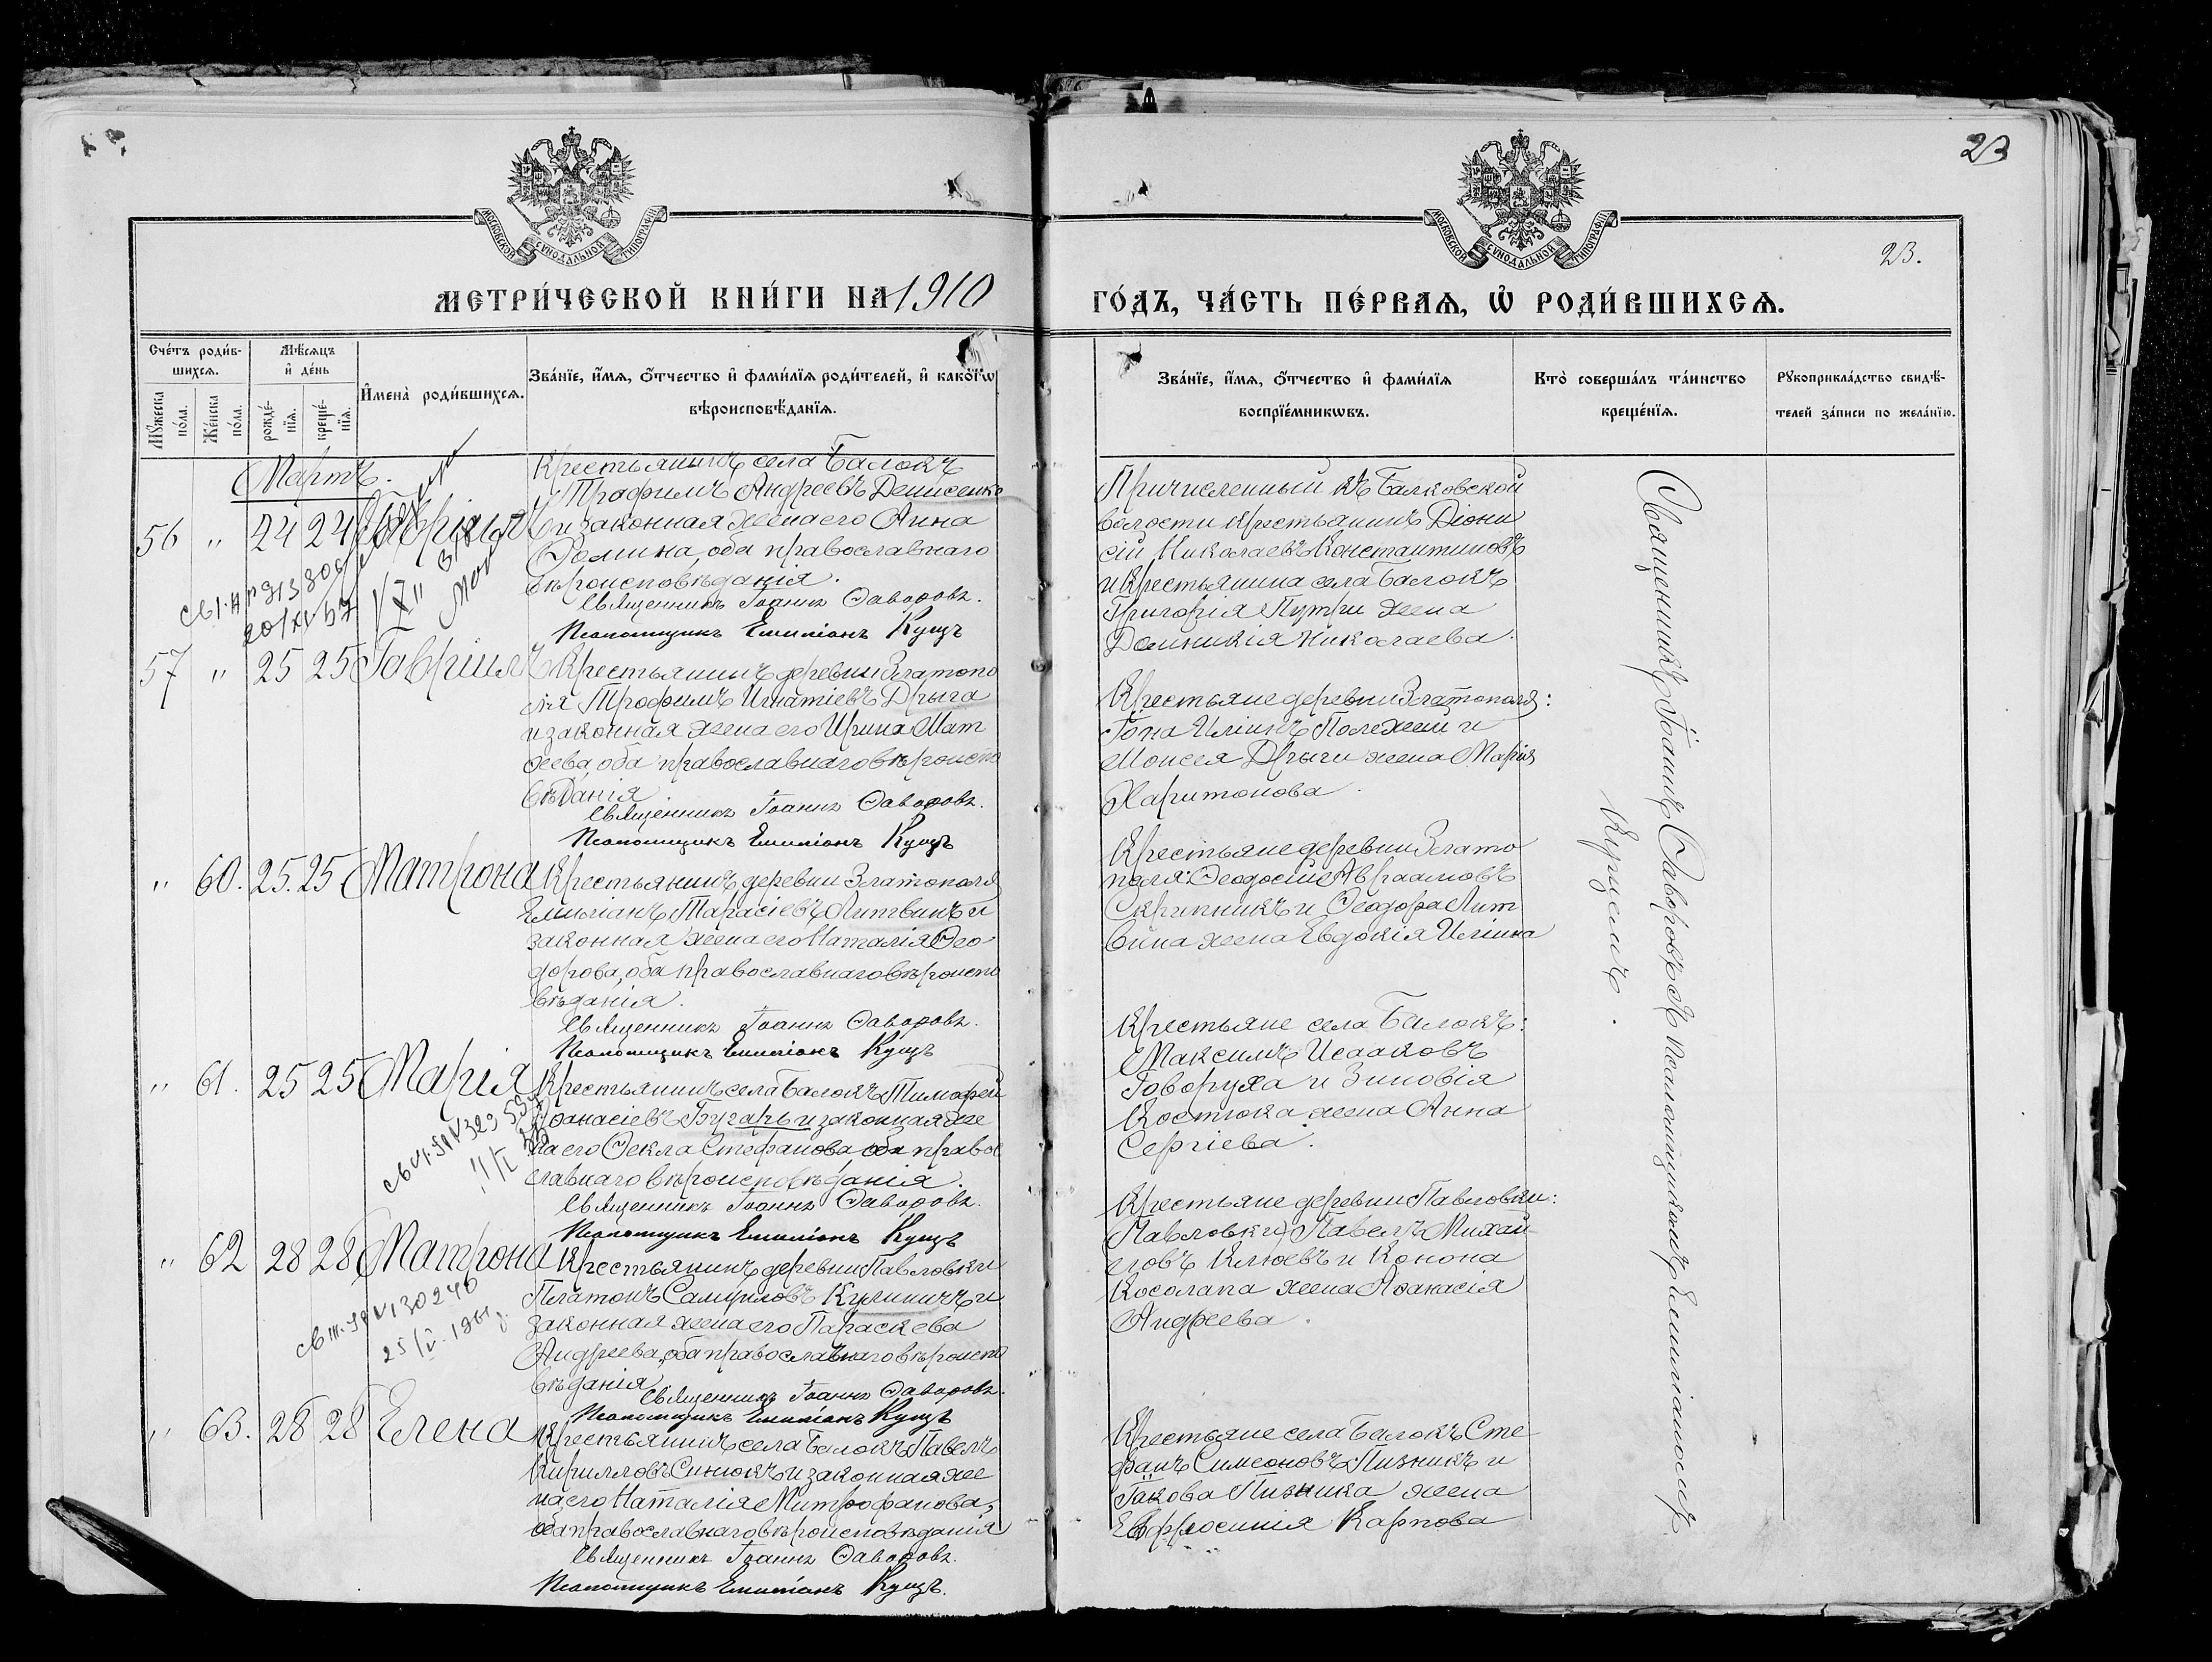 23
МОСКОВСКОЙ СѴНОДАЛЬНОЙ ТИПОГРАФІИ
МОСКОВСКОЙ СѴНОДАЛЬНОЙ ТИПОГРАФІИ
23.
МЕТРИ́ЧЕСКОЙ КНИ́ГИ НА 1910
ГО́ДЪ, ЧА́СТЬ ПЕ́РВАѦ, Ѡ҆ РОДИ́ВШИХСѦ.
Сче́тъ роди́в-
шихсѧ.
Мѣ́сѧцъ
и҆ де́нь
Мꙋ́жеска
по́ла.
Же́нска
по́ла.
рожде́-
нїѧ.
креще́-
нїѧ.
И҆мена̀ роди́вшихсѧ.
Зва́нїе, и҆́мѧ, ѻ҆́тчество и҆ фами́лїѧ роди́телей, и҆ како́гѡ
вѣроисповѣ́данїѧ.
Зва́нїе, и҆́мѧ, ѻ҆́тчество и҆ фами́лїѧ
воспрїе́мникѡвъ.
Кто̀ соверша́лъ та́инство
креще́нїѧ.
Рꙋкоприкла́дство свидѣ́-
телей за́писи по жела́нїю.
Мартъ.
56 " 24 24 Гавріилъ
Крестьянинъ села Балокъ
Трофимъ Андреевъ Денисенко
и законная жена его Анна
Фомина, оба православнаго
вѣроисповѣданія.
Священникъ Іоаннъ Фаворовъ.
Псаломщикъ Емиліанъ Кущъ
Причисленный къ Балковской
волости крестьянинъ Діони
сій Николаевъ Константиновъ
и крестьянина села Балокъ
Григорія Путри жена
Домникія Николаева.
57 " 25 25 Гавріилъ
Крестьянинъ деревни Златопо
ля Трофимъ Игнатіевъ Дрыга
и законная жена его Ирина Мат
ѳеева, оба православнаго вѣроиспо
вѣданія
Священникъ Іоаннъ Фаворовъ.
Псаломщикъ Емиліанъ Кущъ
Крестьяне деревни Златополя:
Іона Иліинъ Полежай и
Моисея Дрыги жена Марія
Харитонова.
" 60. 25. 25 Матрона
Крестьянинъ деревни Златополя
Емиліанъ Тарасіевъ Литвинъ и
законная жена его Наталія Ѳео
дорова, оба православнаго вѣроиспо
вѣданія.
Священникъ Іоаннъ Фаворовъ.
Псаломщикъ Емиліанъ Кущъ
Крестьяне деревни Злато
поля: Ѳеодосій Авраамовъ
Скрипникъ и Ѳеодора Лит
вина жена Евдокія Иліина
" 61. 25 25 Марія
Крестьянинъ села Балокъ Тимоѳей
Аѳанасіевъ Бугаръ и законная же
на его Ѳекла Стефанова оба правос
лавнаго вѣроисповѣданія.
Священникъ Іоаннъ Фаворовъ.
Псаломщикъ Емиліанъ Кущъ
Крестьяне села Балокъ:
Максимъ Исааковъ
Говоруха и Зиновія
Костюка жена Анна
Сергіева.
" 62 28 28 Матрона
25/V. 1961
Крестьянинъ деревни Павловки
Платонъ Самуиловъ Кулиничъ и
законная жена его Параскева
Андреева, оба православнаго вѣроиспо
вѣданія
Священникъ Іоаннъ Фаворовъ.
Псаломщикъ Емиліанъ Кущъ
Крестьяне деревни Павловки:
Павловки) Павелъ Михай
ловъ Клюевъ и Конона
Косолапа жена Аѳанасія
Андреева.
" 63. 28 28 Елена
Крестьянинъ села Балокъ Павелъ
Кирилловъ Синюкъ и законная же
на его Наталія Митрофанова,
оба православнаго вѣроисповѣданія
Священникъ Іоаннъ Фаворовъ.
Псаломщикъ Емиліанъ Кущъ.
Крестьяне села Балокъ Сте
фанъ Симеоновъ Пизникъ и
Іакова Пизника жена
Евфросинія Карпова
Священникъ Іоаннъ Фаворовъ съ псаломщикомъ Емиліаномъ
Кущемъ.